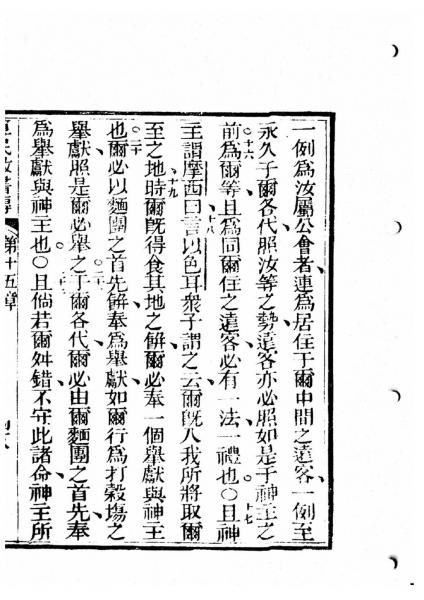 一例爲汝屬公會者、連爲居住于爾中間之遠客、一例至
永久子爾各代照汝等之勢遠客亦必照如是于神主之
前○十六爲爾等且爲同爾住之遠客必有一法一禮也○十七且神
主謂摩西曰十八言以色耳衆子謂之云爾旣入我所將取爾
至之地、十九時爾旣得食其地之餅爾必奉一個舉獻與神主
也○二十爾必以麵團之首先餅奉爲舉獻如爾行爲打穀塲之
舉獻、照是爾必舉之○二一于爾各代、爾必由爾麵團之首先奉
爲舉獻與神主也○且倘若爾舛錯不守此諸命、神主所
民數書傳
第十五章